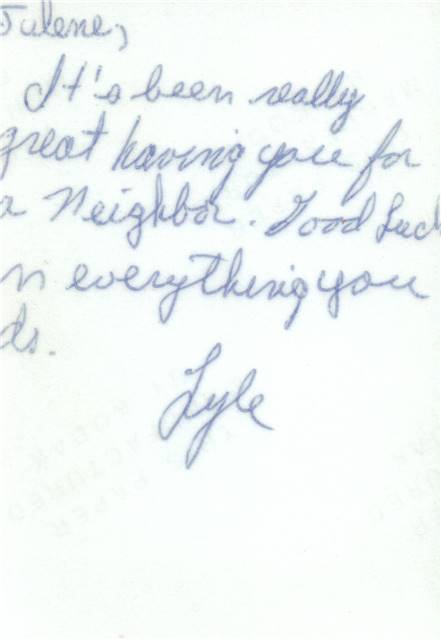 Julene,
It's been really
great having you for
a Neighbor. Good Luck
n everything you
ds.
Lyle